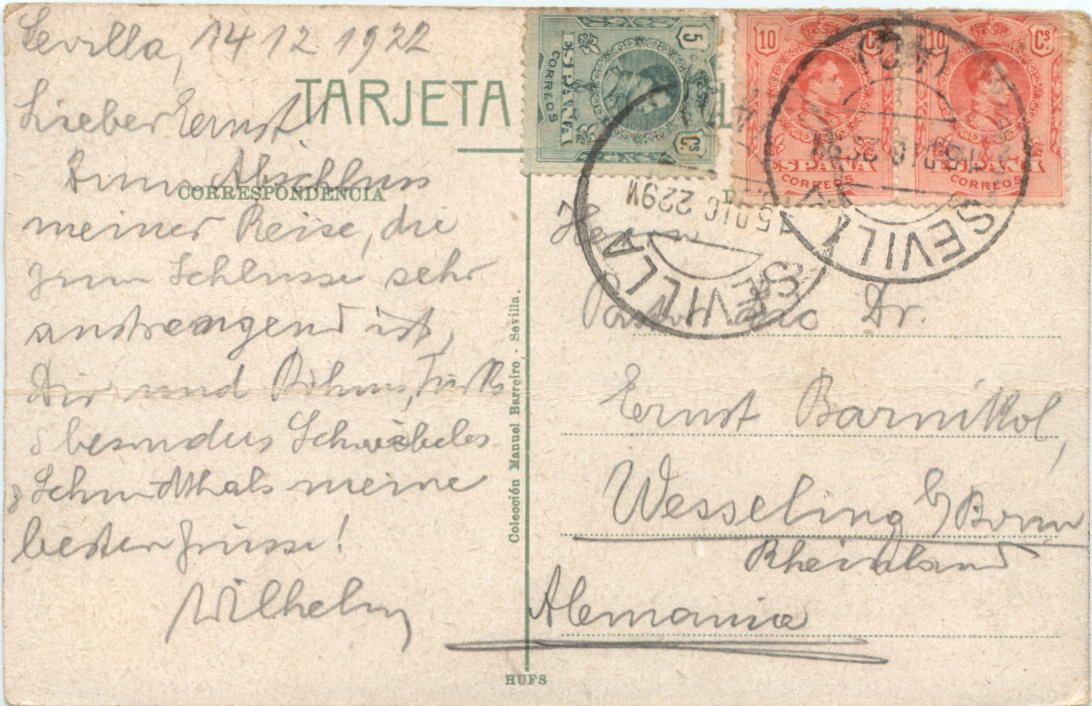 Sevilla, 14 12 1922
TARJETA
Lieber Ernst
Zum Abschluss
CORRESPONDENCIA
meiner Reise, die
zum Schlusse sehr
anstrengend ist,
Dir und
besonders
Schmidthals meine
besten Grüsse!
Wilhelm
Colección Manuel Barreiro. - Sevilla.
HUFS
5 Cs
ESPAÑA
CORREOS
10 Cs
ESPAÑA
CORREOS
10 Cs
ESPAÑA
CORREOS
SEVILLA
15 DIC 22 9M
SEVILLA
Herrn
Dr.
Ernst Barnikol,
Wesseling b/Bonn
Rheinland
Alemania